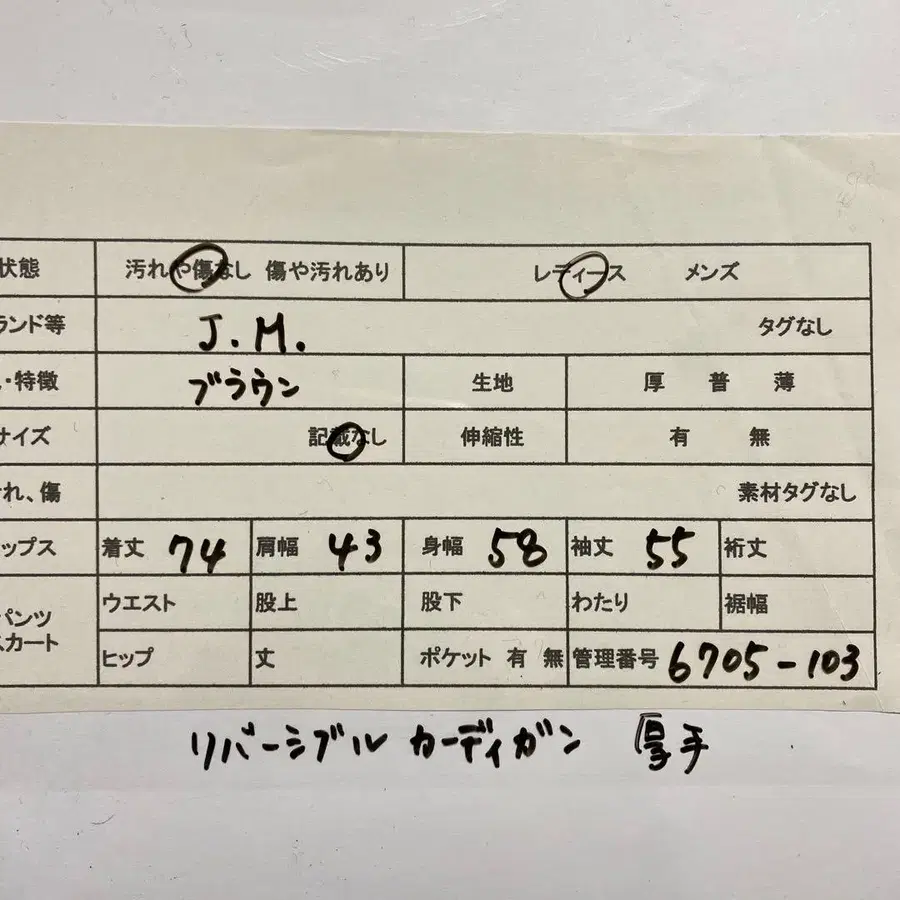 状態 汚れや傷なし 傷や汚れあり レディース メンズ
ランド等 J.M. タグなし
・特徴 ブラウン 生地 厚 普 薄
サイズ 記載なし 伸縮性 有 無
れ、傷 素材タグなし
ップス 着丈 74 肩幅 43 身幅 58 袖丈 55 裄丈
パンツ
スカート
ウエスト 股上 股下 わたり 裾幅
ヒップ 丈 ポケット 有 無 管理番号 6705-103
リバーシブル カーディガン 厚手